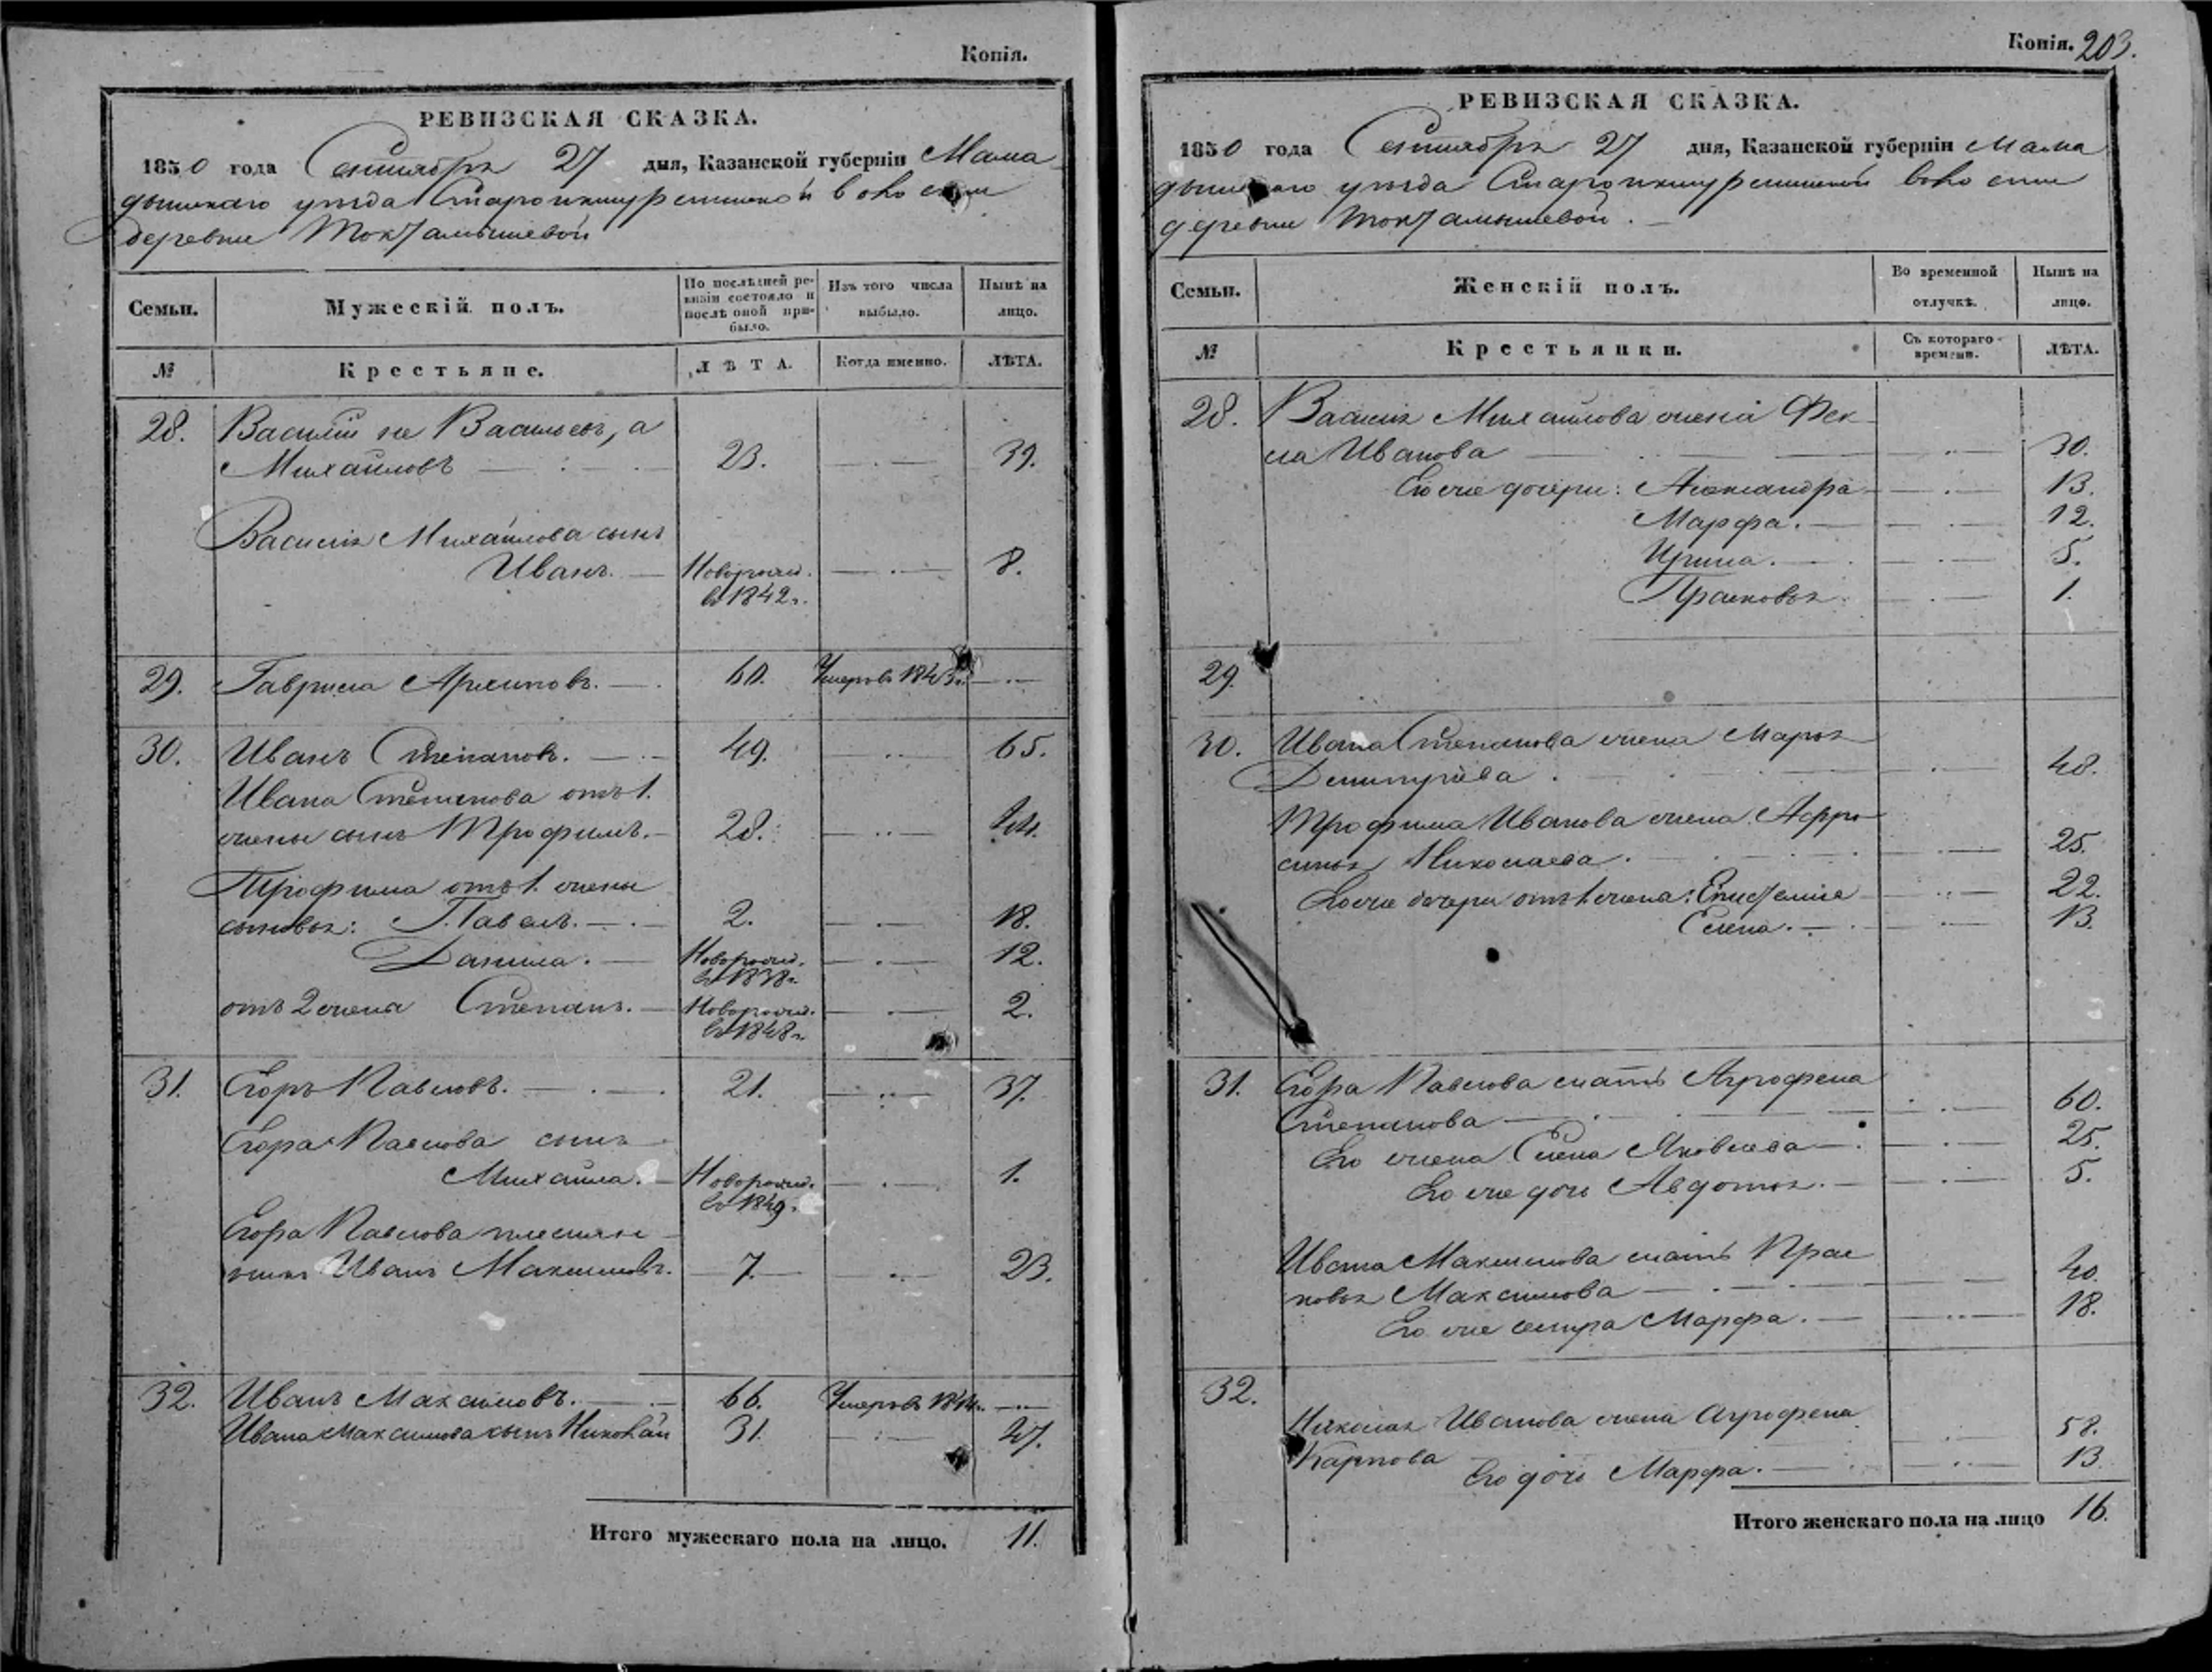 Копія.
РЕВИЗСКАЯ СКАЗКА.
1850 года Сентября 27 дня, Казанской губерніи Мама
дышскаго уѣзда волости
деревни Токталышевой
Семьи.
Мужескій полъ.
По послѣдней ре-
визіи состояло и
послѣ оной при-
было.
Изъ того числа
выбыло.
Нынѣ на
лицо.
№
Крестьяне.
ЛѢТА.
Когда именно.
ЛѢТА.
28. Василій не Васильевъ, а
Михайловъ 23. 39.
Василія Михайлова сынъ
Иванъ. Новорожд. 8.
въ 1842 г.
29. Гаврила Архиповъ. 60. Умеръ въ 1843 г.
30. Иванъ Степановъ. 49. 65.
Ивана Степанова отъ 1.
жены сынъ Трофимъ. 28. 44.
Трофима отъ 1. жены
сыновья: Павелъ. 2. 18.
Данила. Новорожд. 12.
въ 1838 г.
отъ 2 жена Степанъ. Новорожд. 2.
въ 1848 г.
31. Егоръ Павловъ. 21. 37.
Егора Павлова сынъ
Михайла. Новорожд. 1.
въ 1849 г.
Егора Павлова племян-
никъ Иванъ Максимовъ. 7. 23.
32. Иванъ Максимовъ. 66. Умеръ въ 1844 г.
Ивана Максимова сынъ Николай 31. 47.
Итого мужескаго пола на лицо. 11.
Копія. 203.
РЕВИЗСКАЯ СКАЗКА.
1850 года Сентября 27 дня, Казанской губерніи Мама
дышскаго уѣзда волости
деревни Токталышевой.
Семьи.
Женскій полъ.
Во временной
отлучкѣ.
Нынѣ на
лицо.
№
Крестьянки.
Съ котораго
времени.
ЛѢТА.
28. Василія Михайлова жена Фек-
ла Иванова 30.
Его же дочери: Александра 13.
Марфа. 12.
Ирина. 5.
Прасковья 1.
29.
30. Ивана Степанова жена Марья
Дмитріева 48.
Трофима Иванова жена Афро-
синья Николаева. 25.
Его же дочери отъ 1 жена: 22.
Елена. 13.
31. Егора Павлова мать Агрофена
Степанова 60.
Его жена Елена Яковлева 25.
Его же дочь Авдотья. 5.
Ивана Максимова мать Прас
ковья Максимова 40.
Его же сестра Марфа. 18.
32.
Николая Иванова жена Агрофена 58.
Карпова
Его дочь Марфа. 13.
Итого женскаго пола на лицо 16.